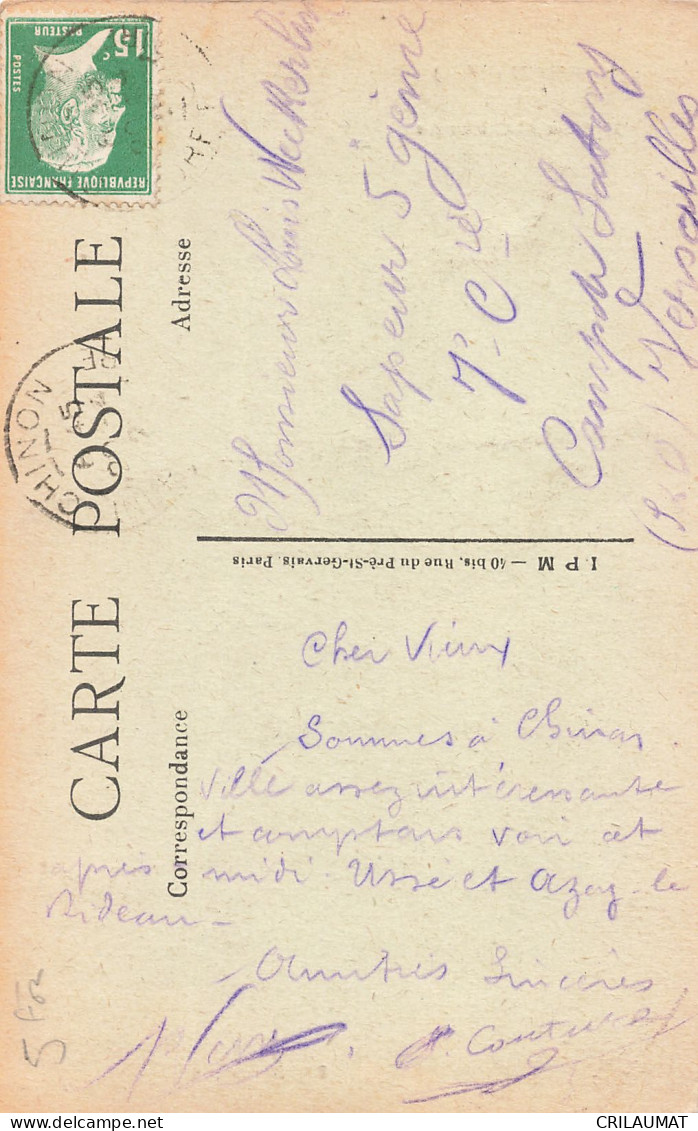 CARTE POSTALE
Correspondance
Adresse
15c
POSTES
PASTEUR
REPVBLIQVE FRANÇAISE
CHINON
I P M — 40 bis, Rue du Pré-St-Gervais, Paris
Monsieur Louis
Sapeur 5 génie
7e Cie
Camp de Satory
Versailles
(S&O)
Cher Vieux
Sommes à Chinon
Ville assez intéressante
et comptons voir cet
après midi Ussé et Azay-le
Rideau
Amitiés Sincères
5 Fr
CRILAUMAT